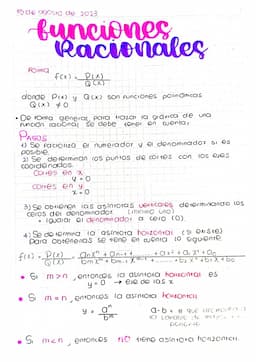 15 de agosto de 2023
funciones
Racionales
Forma
f(x) = P(x)/Q(x)
donde P(x) y Q(x) son funciones polinómicas
Q(x) ≠ 0
• De forma general para trazar la gráfica de una
función racional se debe tener en cuenta:
Pasos
1) Se factoriza el numerador y el denominador si es
posible.
2) Se determinan los puntos de cortes con los ejes
coordenados.
Cortes en x
y = 0
cortes en y
x = 0
3) Se obtienen las asíntotas verticales determinando los
ceros del denominador (mínimo uno)
• Igualar el denominador a cero (0).
4) Se determina la asíntota horizontal (si existe)
Para obtenerlas se tiene en cuenta lo siguiente
f(x) = P(x)/Q(x)
• Si m > n, entonces la asíntota horizontal es
y = 0 → eje de las x
• Si m = n, entonces la asíntota horizontal
y = aⁿ/bᵐ
a-b =
• Si m < n, entonces NO tiene asíntota horizontal.